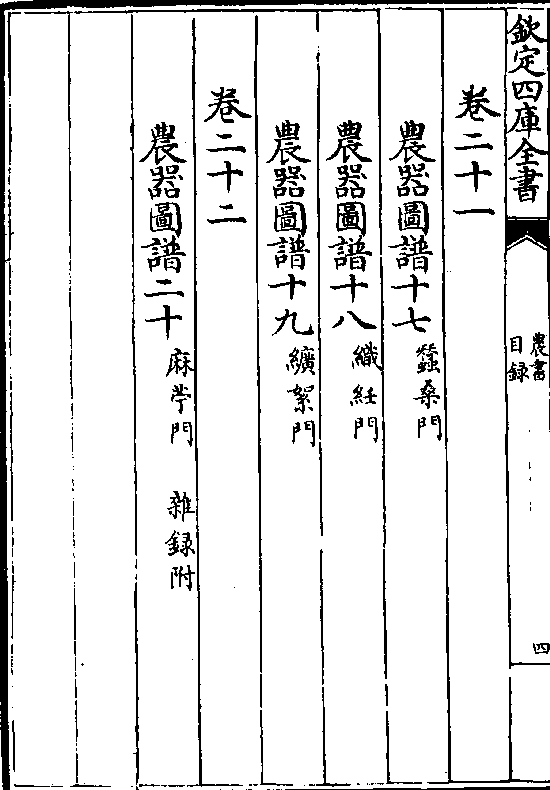 欽定四庫全書
農書
目録
四
卷二十一
農器圖譜十七 蠶桑門
農器圖譜十八 織絍門
農器圖譜十九 纊絮門
卷二十二
農器圖譜二十 麻苧門 雜録附